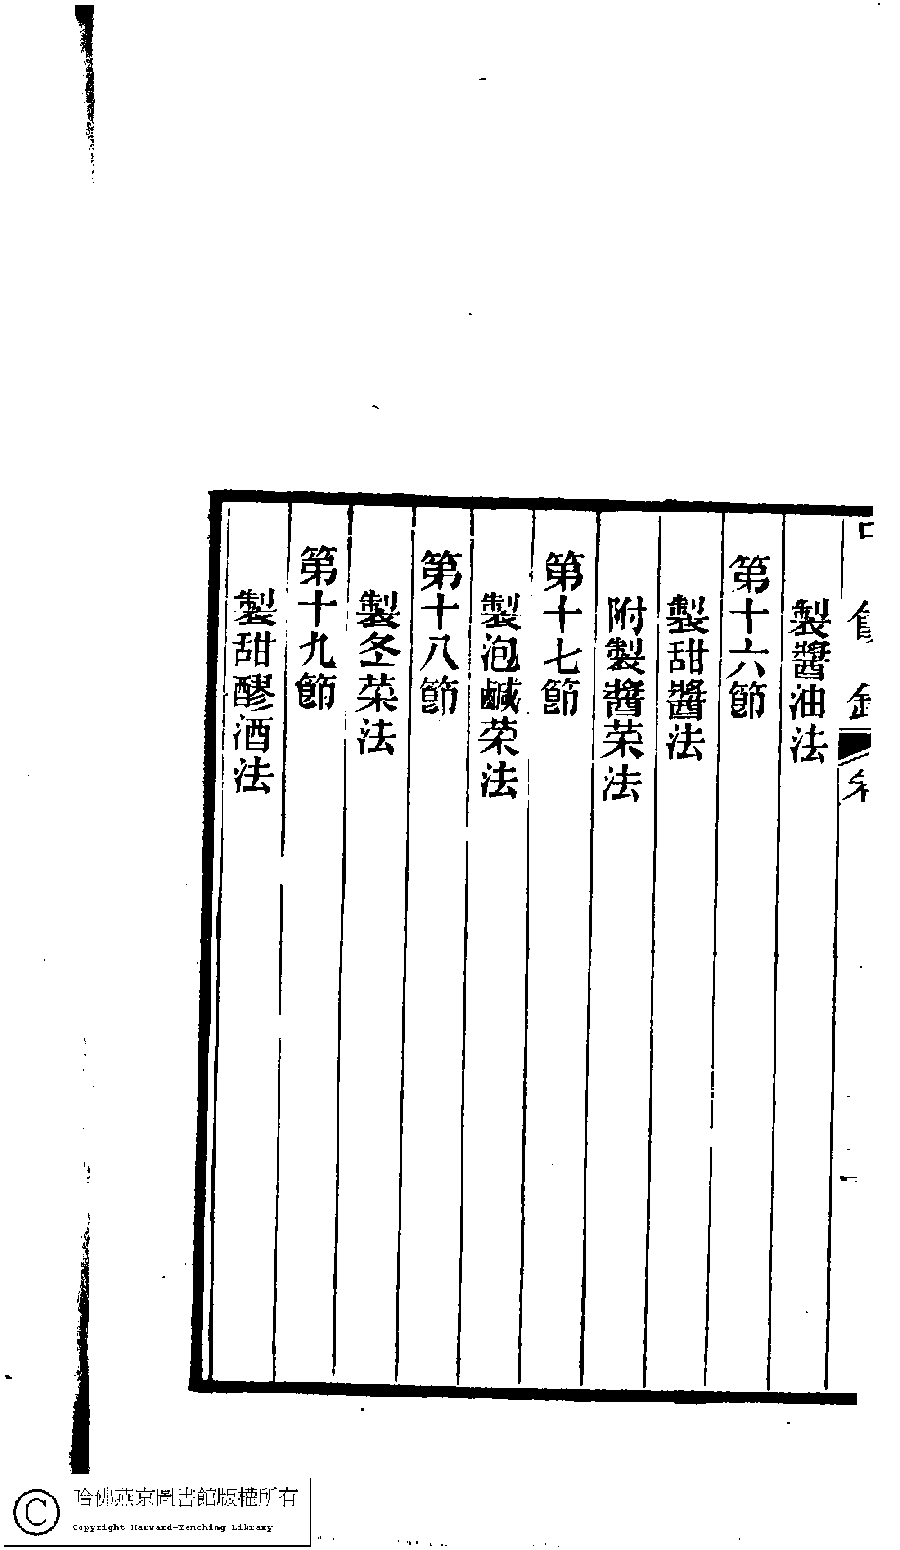 製醬油法
第十六節
製甜醬法
附製醬菜法
第十七節
製泡鹹菜法
第十八節
製冬菜法
第十九節
製甜醪酒法
哈佛燕京圖書館版權所有
Copyright Harvard-Yenching Library